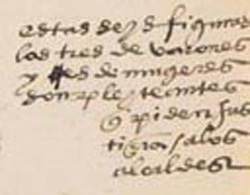 estas seys figuras
las tres de varones
y tres de mugeres
son pleyteantes
q̃ piden sus
tierras a los
alcaldes